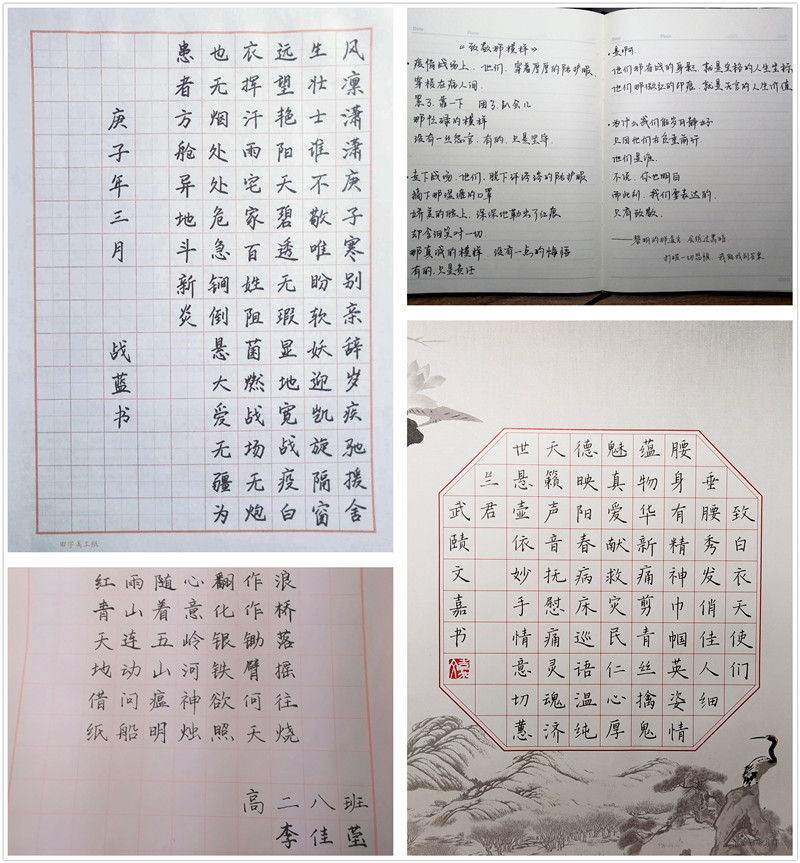 风凛潇潇庚子寒别亲辞岁疾驰援舍
生壮士谁不敬唯盼软妖迎凯旋隔窗
远望艳阳天碧透无瑕显地宽战疫白
衣挥汗雨宅家百姓阻菌燃战场无炮
也无烟处处危急锏倒悬大爱无疆为
患者方舱异地斗新炎
庚子年三月 战蓝书
田字美工纸
《致敬那模样》
·疫情战场上，他们，穿着厚厚的防护服，
穿梭在病人间
累了，靠一下 困了，趴会儿
那忙碌的模样
没有一丝怨言，有的，只是坚牢
·走下战场，他们，脱下汗涔涔的防护服
摘下那湿漉的口罩
娇美的脸上，深深地勒出了红痕
却含泪笑对一切
那真诚的模样，没有一点的悔悟
有的，只是责任
·是啊，
他们那奋战的身影，就是坐标的人生坐标
他们那微红的印痕，就是天官的人生价值
·为什么我们能岁月静好
只因他们在负重前行
他们是谁
不说，你也明白
而此刻，我们要表达的
只有致敬
打破一切恐惧，我能找到答案
浪桥落摇往烧
作作锄臂何天
翻化银铁欲照
心意岭河神烛
随着五山瘟明
雨山连动问船
红青天地借纸
高二八班
李佳莹
致白衣天使们
垂腰秀发俏佳人细
腰身有精神巾帼英姿情
蕴物华新痛剪青丝擒鬼
魅真爱献救灾民仁心厚
德映阳春病床巡语温纯
天籁声音抚慰痛灵魂济
世悬壶依妙手情意切蕙
兰君
武赜文嘉书